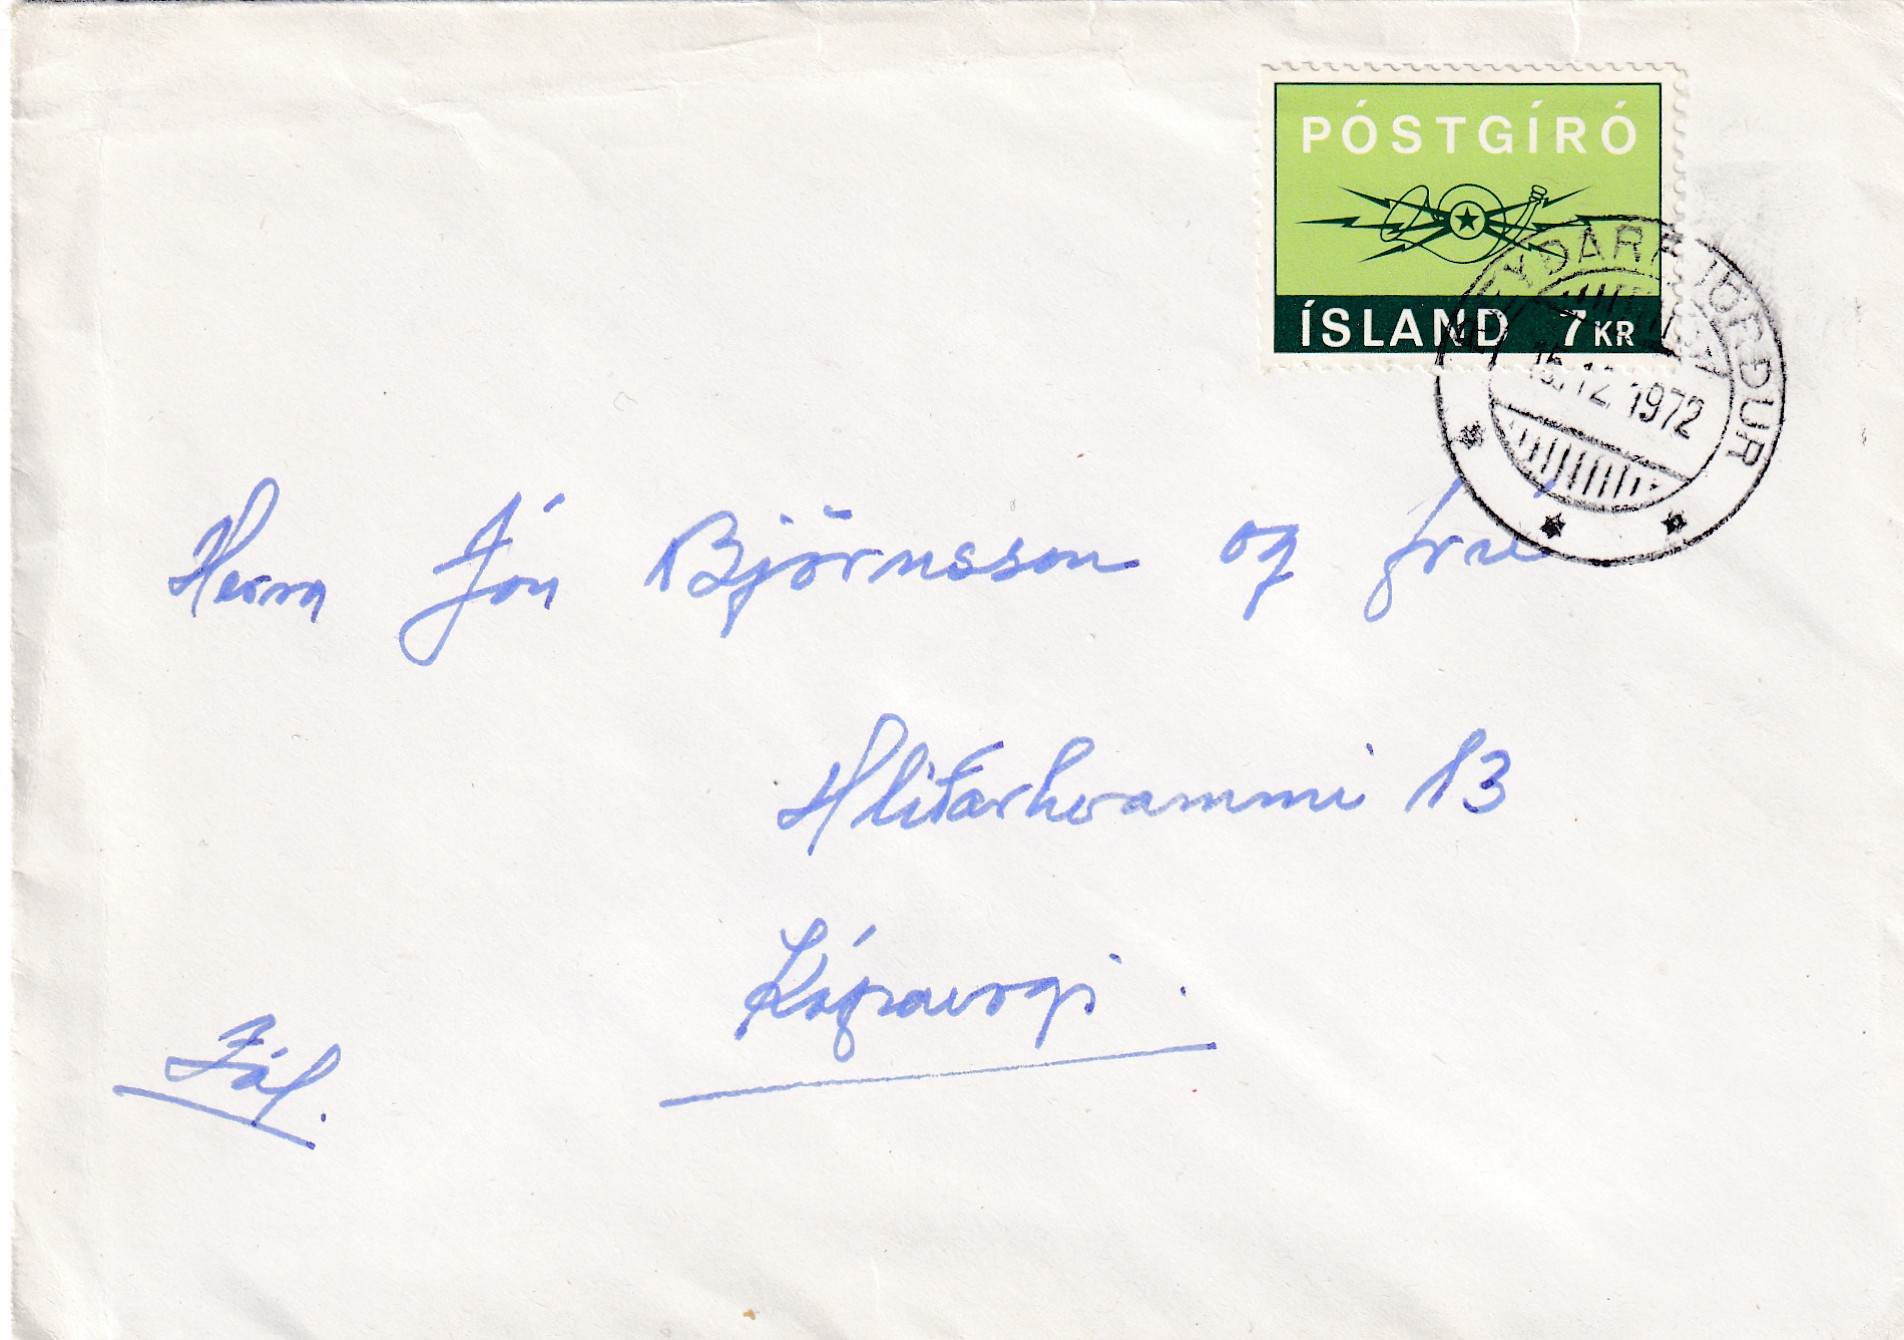 PÓSTGÍRÓ
ÍSLAND 7 KR
REYÐARFJÖRÐUR
15.12.1972
Herra Jón Björnsson og frú
Hlíðarhvammi 13
Kópavogi.